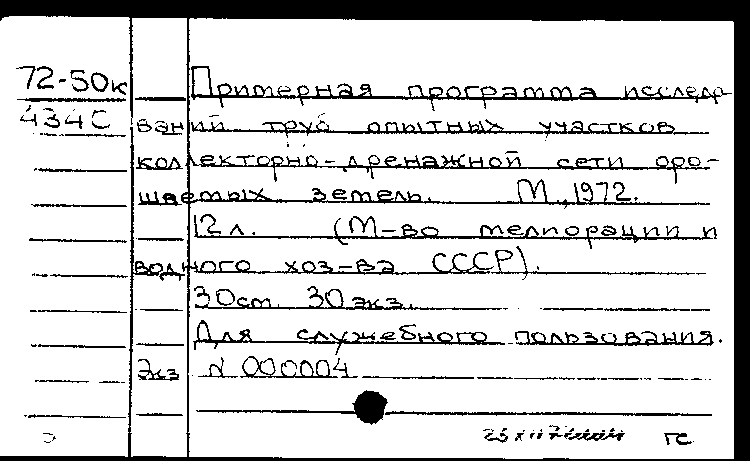 72-50к
434С
Примерная программа исследо-
ваний труб опытных участков
коллекторно-дренажной сети оро-
шаемых земель. М.,1972.
12 л. (М-во мелиорации и
водного хоз-ва СССР).
30см. 30 экз.
Для служебного пользования.
Экз N 000004
ГС